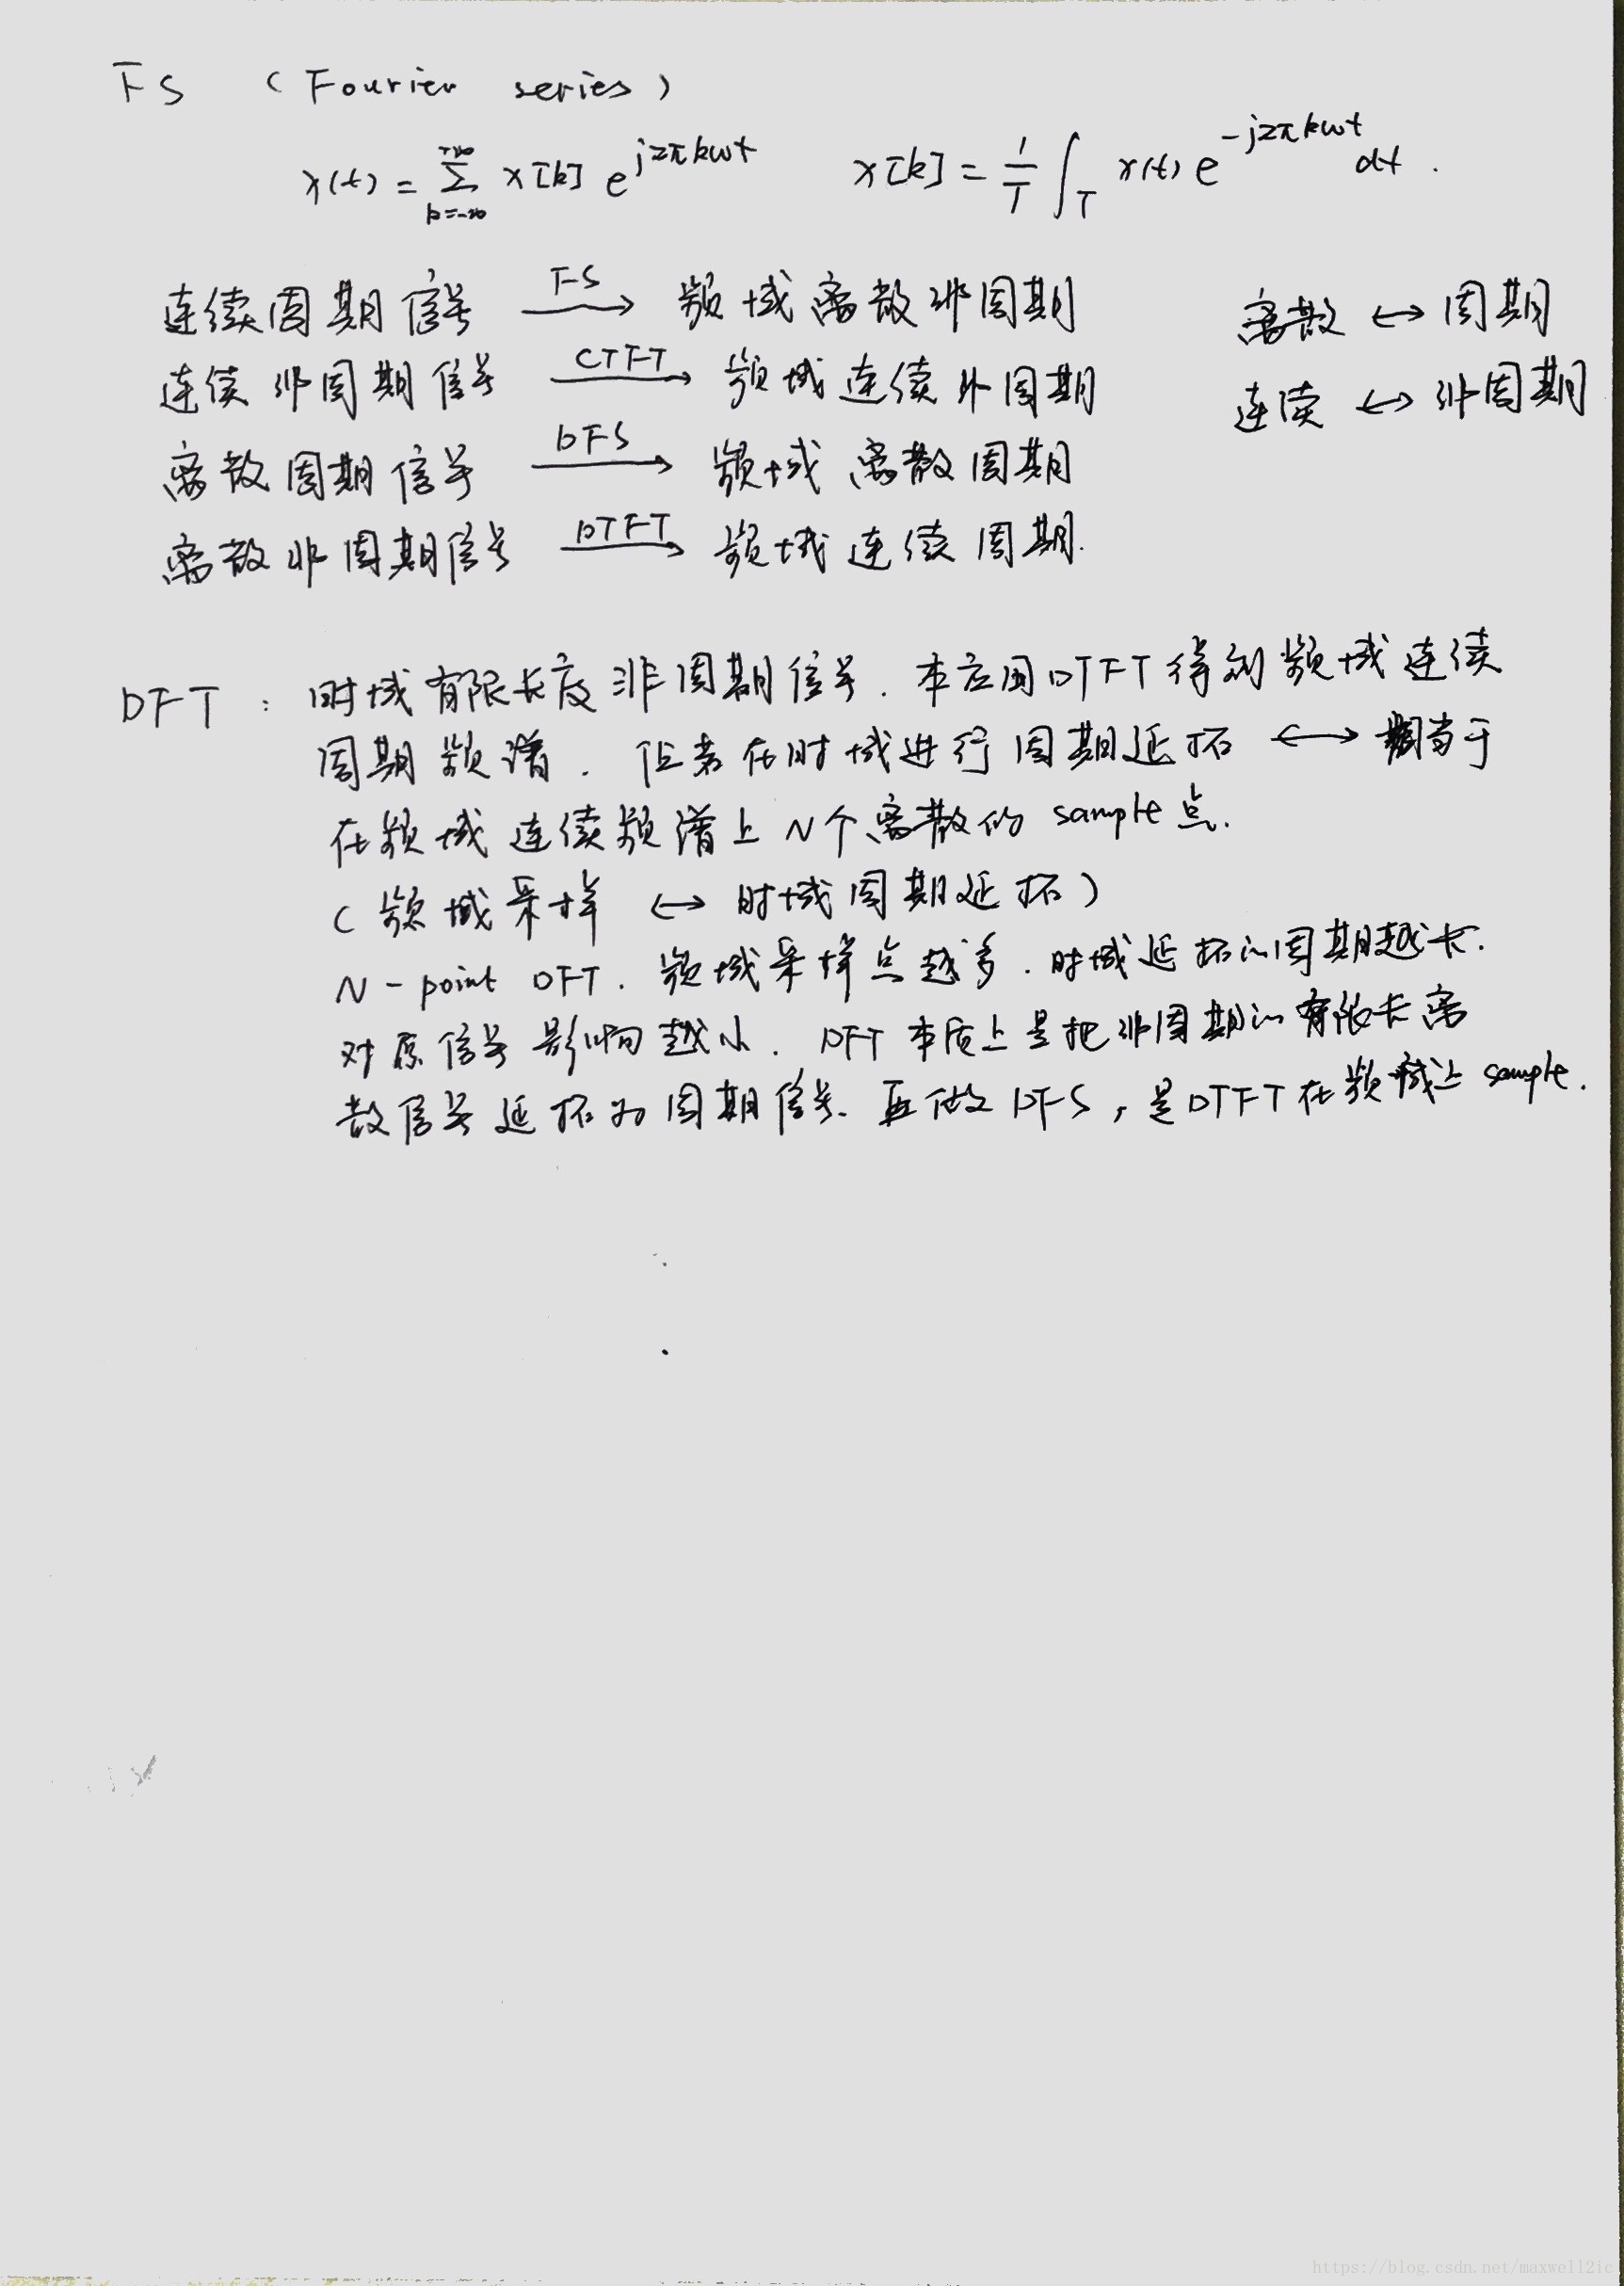 FS (Fourier series)
x(t) = ∑_{k=-∞}^{+∞} x[k] e^{j2πkωt}   x[k] = 1/T ∫_T x(t) e^{-j2πkωt} dt .
连续周期信号 —FS→ 频域离散非周期   离散 ↔ 周期
连续非周期信号 —CTFT→ 频域连续非周期   连续 ↔ 非周期
离散周期信号 —DFS→ 频域离散周期
离散非周期信号 —DTFT→ 频域连续周期.
DFT : 时域有限长度非周期信号. 本应用DTFT得到频域连续
周期频谱. 但若在时域进行周期延拓 ↔ 相当于
在频域连续频谱上N个离散的 sample点.
( 频域采样 ↔ 时域周期延拓 )
N-point DFT. 频域采样点越多. 时域延拓的周期越长.
对原信号影响越小. DFT 本质上是把非周期的有限长离
散信号延拓为周期信号. 再做DFS, 是DTFT在频域上 sample.
https://blog.csdn.net/maxwell2ic